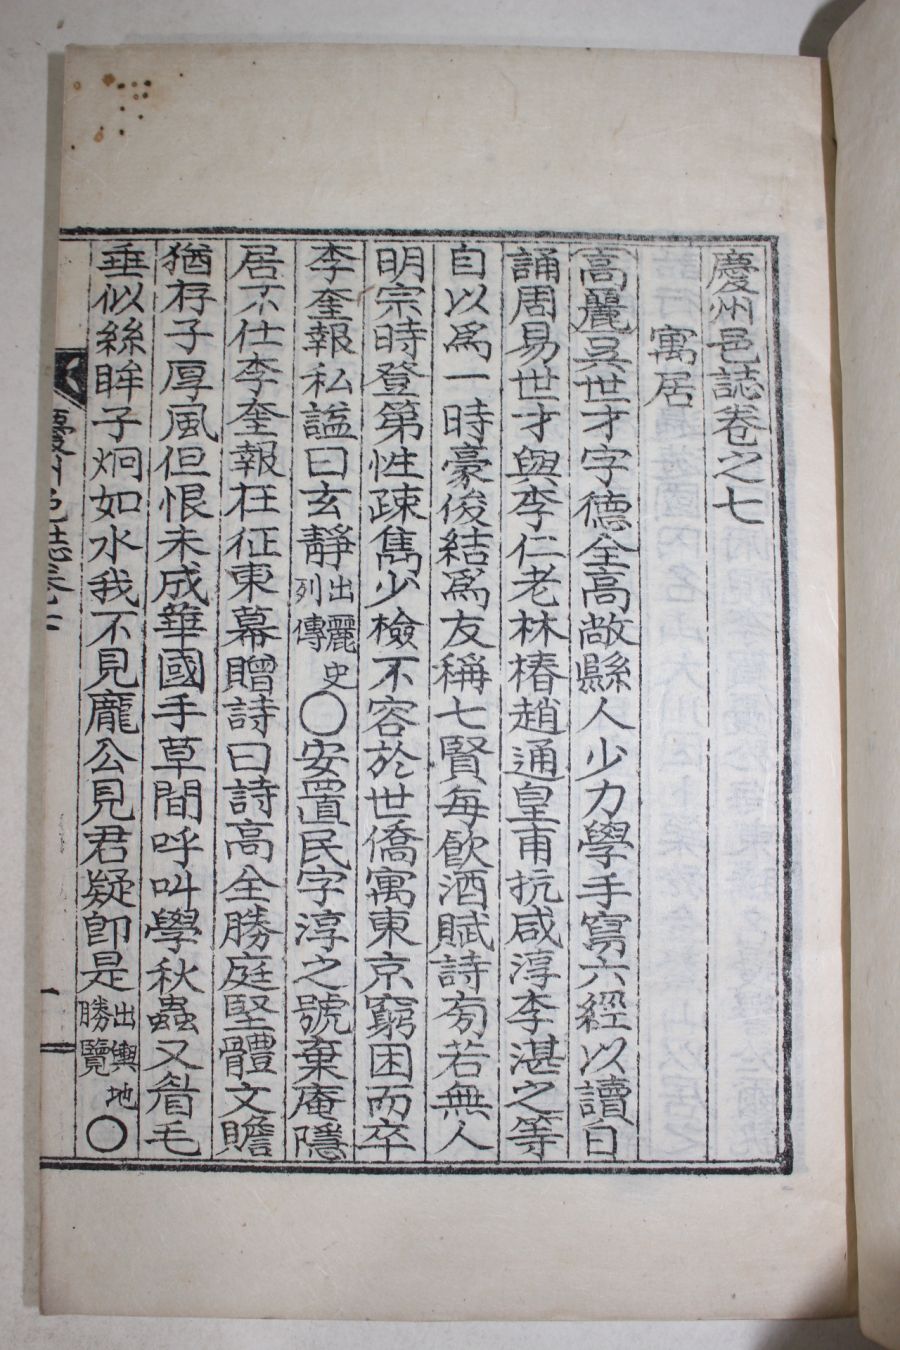 慶州邑誌卷之七
寓居
高麗吳世才字德全高敞縣人少力學手寫六經以讀日
誦周易世才與李仁老林椿趙通皇甫抗咸淳李湛之等
自以爲一時豪俊結爲友稱七賢每飮酒賦詩旁若無人
明宗時登第性疎雋少檢不容於世僑寓東京窮困而卒
李奎報私諡曰玄靜出麗史列傳〇安置民字淳之號棄庵隱
居不仕李奎報在征東幕贈詩曰詩高全勝庭堅體文贍
猶存子厚風但恨未成華國手草間呼叫學秋蟲又眉毛
垂似絲眸子炯如水我不見龐公見君疑卽是出輿地勝覽〇
慶州邑誌卷七
一